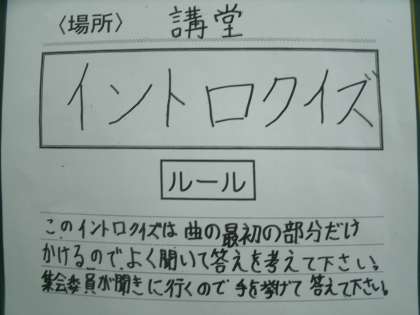 〈場所〉 講堂
イントロクイズ
ルール
このイントロクイズは曲の最初の部分だけ
かけるので、よく聞いて答えを考えて下さい。
集会委員が聞きに行くので手を挙げて答えて下さい。